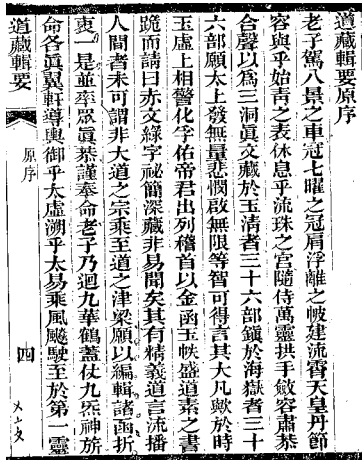 道藏輯要原序
老子駕八景之車冠七曜之冠肩浮離之帔建流霄天皇丹節
容與乎始青之表休息乎流珠之宮隨侍萬靈拱手斂容肅恭
合聲以爲三洞眞文藏於玉清者三十六部鎮於海嶽者三十
六部願太上發無量悲憫啟無限等智可得言其大凡歟於時
玉虛上相警化孚佑帝君出列稽首以金函玉帙盛道素之書
跪而請曰赤文綠字祕簡深藏非易聞矣其有精義道言流播
人間者未可謂非大道之宗乘至道之津梁願以編輯諸函折
衷一是並率眾眞恭謹奉命老子乃迴九華鶴蓋仗九炁神旂
命各眞翼軒導輿御乎太虛溯乎太易乘風飈駛至於第一靈
道藏輯要
原序
四